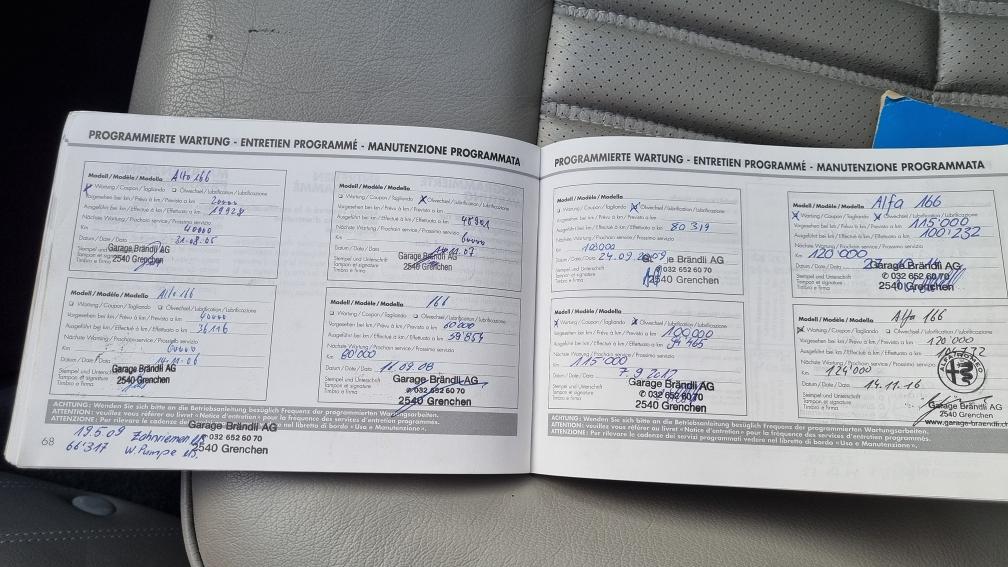 PROGRAMMIERTE WARTUNG - ENTRETIEN PROGRAMMÉ - MANUTENZIONE PROGRAMMATA
Modell / Modèle / Modello Alfa 166
X Wartung / Coupon / Tagliando Ölwechsel / Lubrification / Lubrificazione
Vorgesehen bei km / Prévu à km / Previsto a km 20000
Ausgeführt bei km / Effectué à km / Effettuato a km 19928
Nächste Wartung / Prochain service / Prossimo servizio
Km 40000
Datum / Date / Data 31.08.05
Stempel und Unterschrift
Tampon et signature
Timbro e firma
Garage Brändli AG
2540 Grenchen
Modell / Modèle / Modello Alfa 166
Wartung / Coupon / Tagliando Ölwechsel / Lubrification / Lubrificazione
Vorgesehen bei km / Prévu à km / Previsto a km 40000
Ausgeführt bei km / Effectué à km / Effettuato a km 36116
Nächste Wartung / Prochain service / Prossimo servizio
Km 60000
Datum / Date / Data 14.11.06
Stempel und Unterschrift
Tampon et signature
Timbro e firma
Garage Brändli AG
2540 Grenchen
Modell / Modèle / Modello
Wartung / Coupon / Tagliando X Ölwechsel / Lubrification / Lubrificazione
Vorgesehen bei km / Prévu à km / Previsto a km
Ausgeführt bei km / Effectué à km / Effettuato a km
Nächste Wartung / Prochain service / Prossimo servizio
Km 60000
Datum / Date / Data
Stempel und Unterschrift
Tampon et signature
Timbro e firma
Garage Brändli AG
2540 Grenchen
Modell / Modèle / Modello 166
Wartung / Coupon / Tagliando Ölwechsel / Lubrification / Lubrificazione
Vorgesehen bei km / Prévu à km / Previsto a km 60000
Ausgeführt bei km / Effectué à km / Effettuato a km
Nächste Wartung / Prochain service / Prossimo servizio
Km 80'000
Datum / Date / Data 11.09.08
Stempel und Unterschrift
Tampon et signature
Timbro e firma
Garage Brändli AG
✆ 032 652 60 70
2540 Grenchen
ACHTUNG: Wenden Sie sich bitte an die Betriebsanleitung bezüglich Frequenz der programmierten Wartungsarbeiten.
ATTENTION: veuillez vous référer au livret «Notice d'entretien» pour la fréquence des services d'entretien programmés.
ATTENZIONE: Per rilevare le cadenze dei servizi programmati vedere nel libretto di bordo «Uso e Manutenzione».
68
19.5 09 Zahnriemen
66'317 W. Pumpe
Garage Brändli AG
✆ 032 652 60 70
2540 Grenchen
PROGRAMMIERTE WARTUNG - ENTRETIEN PROGRAMMÉ - MANUTENZIONE PROGRAMMATA
Modell / Modèle / Modello
Wartung / Coupon / Tagliando X Ölwechsel / Lubrification / Lubrificazione
Vorgesehen bei km / Prévu à km / Previsto a km
Ausgeführt bei km / Effectué à km / Effettuato a km 80 319
Nächste Wartung / Prochain service / Prossimo servizio
Km 100'000
Datum / Date / Data
Stempel und Unterschrift
Tampon et signature
Timbro e firma
Brändli AG
✆ 032 652 60 70
2540 Grenchen
Modell / Modèle / Modello
X Wartung / Coupon / Tagliando X Ölwechsel / Lubrification / Lubrificazione
Vorgesehen bei km / Prévu à km / Previsto a km 100'000
Ausgeführt bei km / Effectué à km / Effettuato a km
Nächste Wartung / Prochain service / Prossimo servizio
Km 115'000
Datum / Date / Data 7.9.2012
Stempel und Unterschrift
Tampon et signature
Timbro e firma
Garage Brändli AG
✆ 032 652 60 70
2540 Grenchen
Modell / Modèle / Modello Alfa 166
X Wartung / Coupon / Tagliando X Ölwechsel / Lubrification / Lubrificazione
Vorgesehen bei km / Prévu à km / Previsto a km 115'000
Ausgeführt bei km / Effectué à km / Effettuato a km 100'232
Nächste Wartung / Prochain service / Prossimo servizio
Km 120'000
Datum / Date / Data
Stempel und Unterschrift
Tampon et signature
Timbro e firma
Garage Brändli AG
✆ 032 652 60 70
2540 Grenchen
Modell / Modèle / Modello Alfa 166
X Wartung / Coupon / Tagliando Ölwechsel / Lubrification / Lubrificazione
Vorgesehen bei km / Prévu à km / Previsto a km 120'000
Ausgeführt bei km / Effectué à km / Effettuato a km
Nächste Wartung / Prochain service / Prossimo servizio
Km 124'000
Datum / Date / Data 14.11.16
Stempel und Unterschrift
Tampon et signature
Timbro e firma
Garage Brändli AG
2540 Grenchen
ACHTUNG: Wenden Sie sich bitte an die Betriebsanleitung bezüglich Frequenz der programmierten Wartungsarbeiten.
ATTENTION: veuillez vous référer au livret «Notice d'entretien» pour la fréquence des services d'entretien programmés.
ATTENZIONE: Per rilevare le cadenze dei servizi programmati vedere nel libretto di bordo «Uso e Manutenzione».